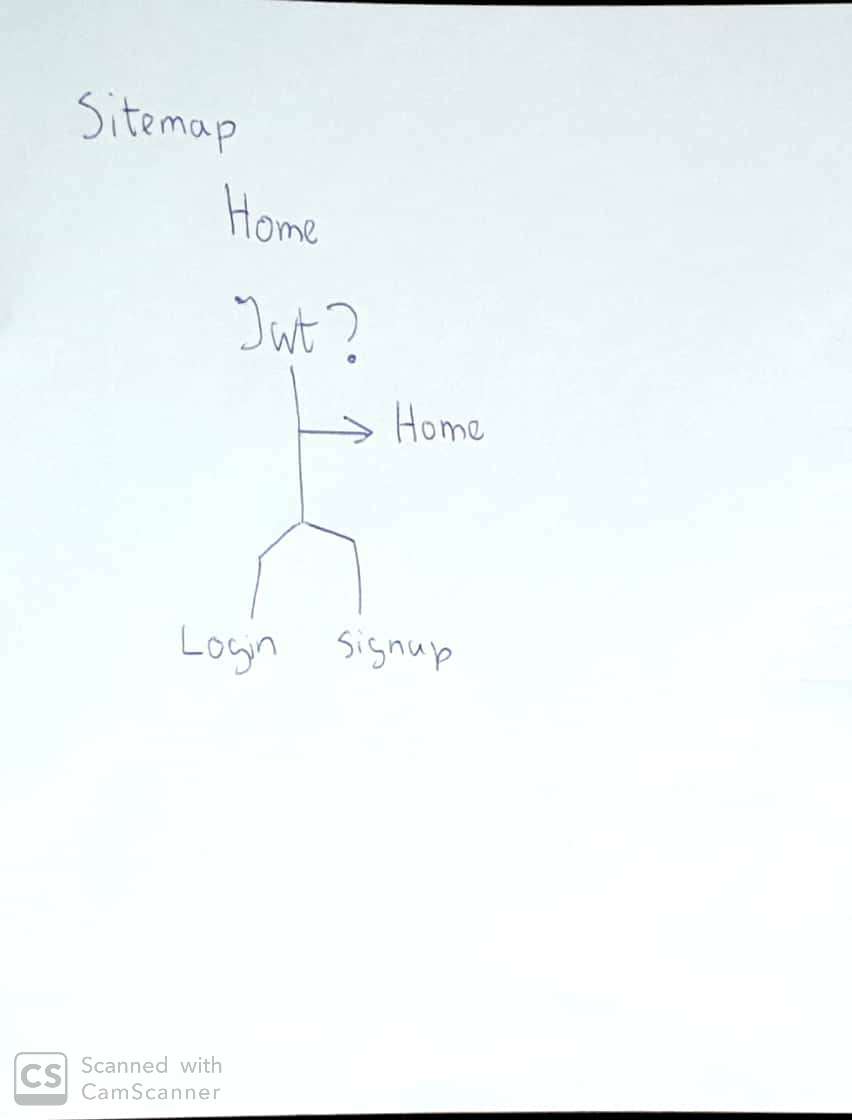 Sitemap
Home
Jwt?
Home
Login signup
CS Scanned with
CamScanner